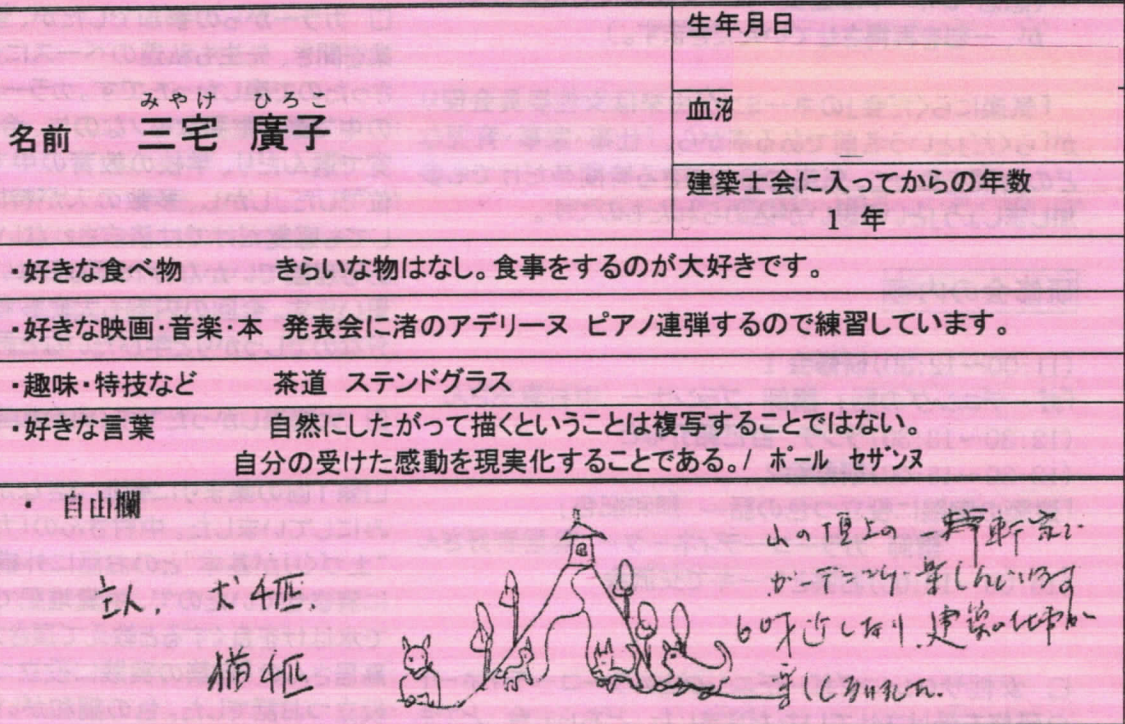 生年月日
血
みやけ ひろこ
名前 三宅 廣子
建築士会に入ってからの年数
1 年
・好きな食べ物 きらいな物はなし。食事をするのが大好きです。
・好きな映画・音楽・本 発表会に渚のアデリーヌ ピアノ連弾するので練習しています。
・趣味・特技など 茶道 ステンドグラス
・好きな言葉 自然にしたがって描くということは複写することではない。
自分の受けた感動を現実化することである。/ ポール セザンヌ
・ 自由欄
山の頂上の 一軒家で
ガーデニング 楽しんでいます
建築の仕事が
楽しくなりました。
主人 犬 匹
猫 匹